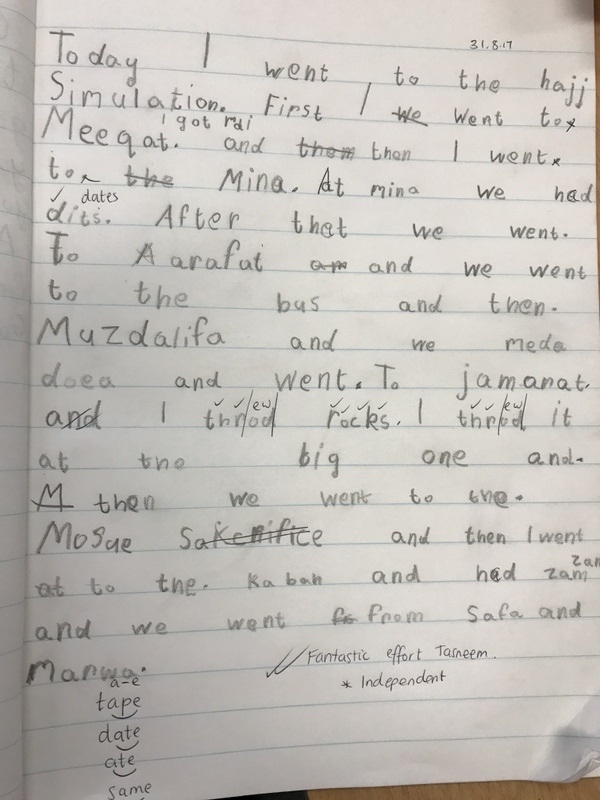 31.8.17
Today I went to the hajj
Simulation. First I we went to
I got rdi
Meeqat. and them then I went
to the Mina. At mina we had
dates
dits. After that we went.
To Aarafat am and we went
to the bus and then.
Muzdalifa and we meda
doea and went. To jamanat.
and I throd rocks. I throd it
ew ew
at the big one and.
M then we went to the.
Mosque and then I went
at to the. Kabah and had zam zam
and we went from Safa and
Marwa.
Fantastic effort Tasneem.
* Independent
a-e
tape
date
ate
same